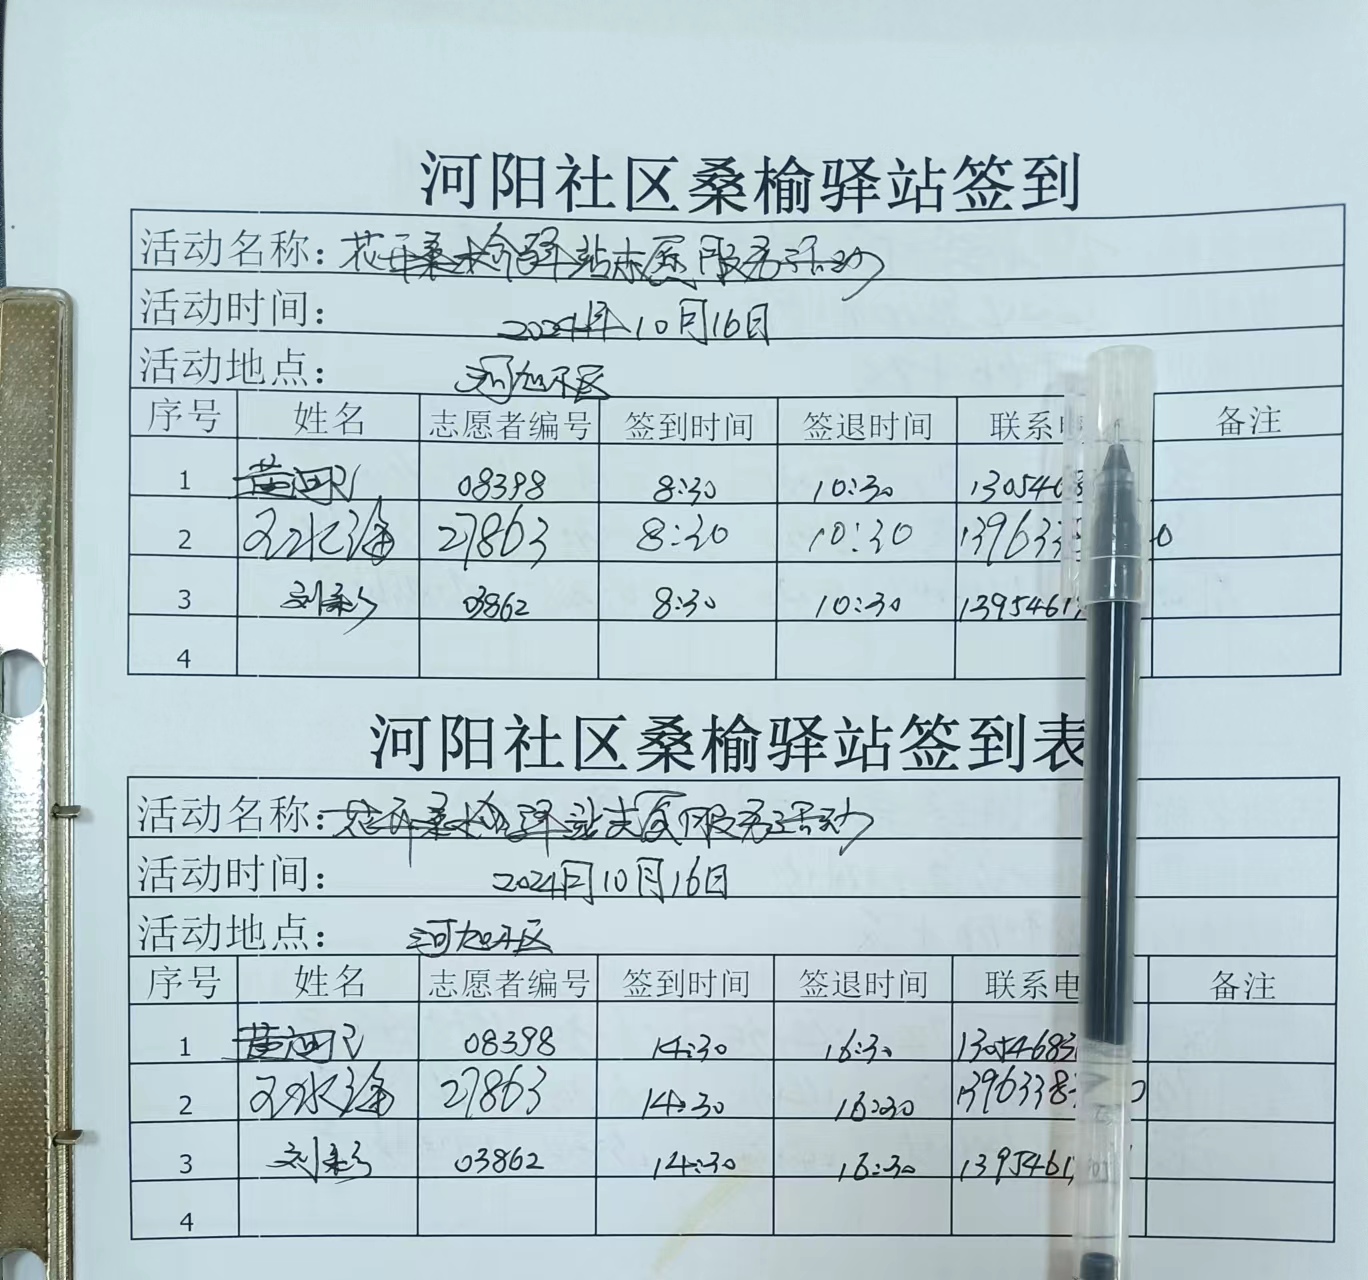 河阳社区桑榆驿站签到
活动名称：花开桑榆驿站志愿服务活动
活动时间： 2024年10月16日
活动地点： 河阳社区
序号 姓名 志愿者编号 签到时间 签退时间 联系电 备注
1 08398 8:30 10:30 130546
2 27863 8:30 10:30 139633 0
3 刘彩 03862 8:30 10:30 1395461
4
河阳社区桑榆驿站签到表
活动名称：花开桑榆驿站志愿服务活动
活动时间： 2024月10月16日
活动地点： 河阳社区
序号 姓名 志愿者编号 签到时间 签退时间 联系电 备注
1 08398 14:30 16:30 13054683
2 27863 14:30 16:30 1396338
3 刘彩 03862 14:30 16:30 1395461
4